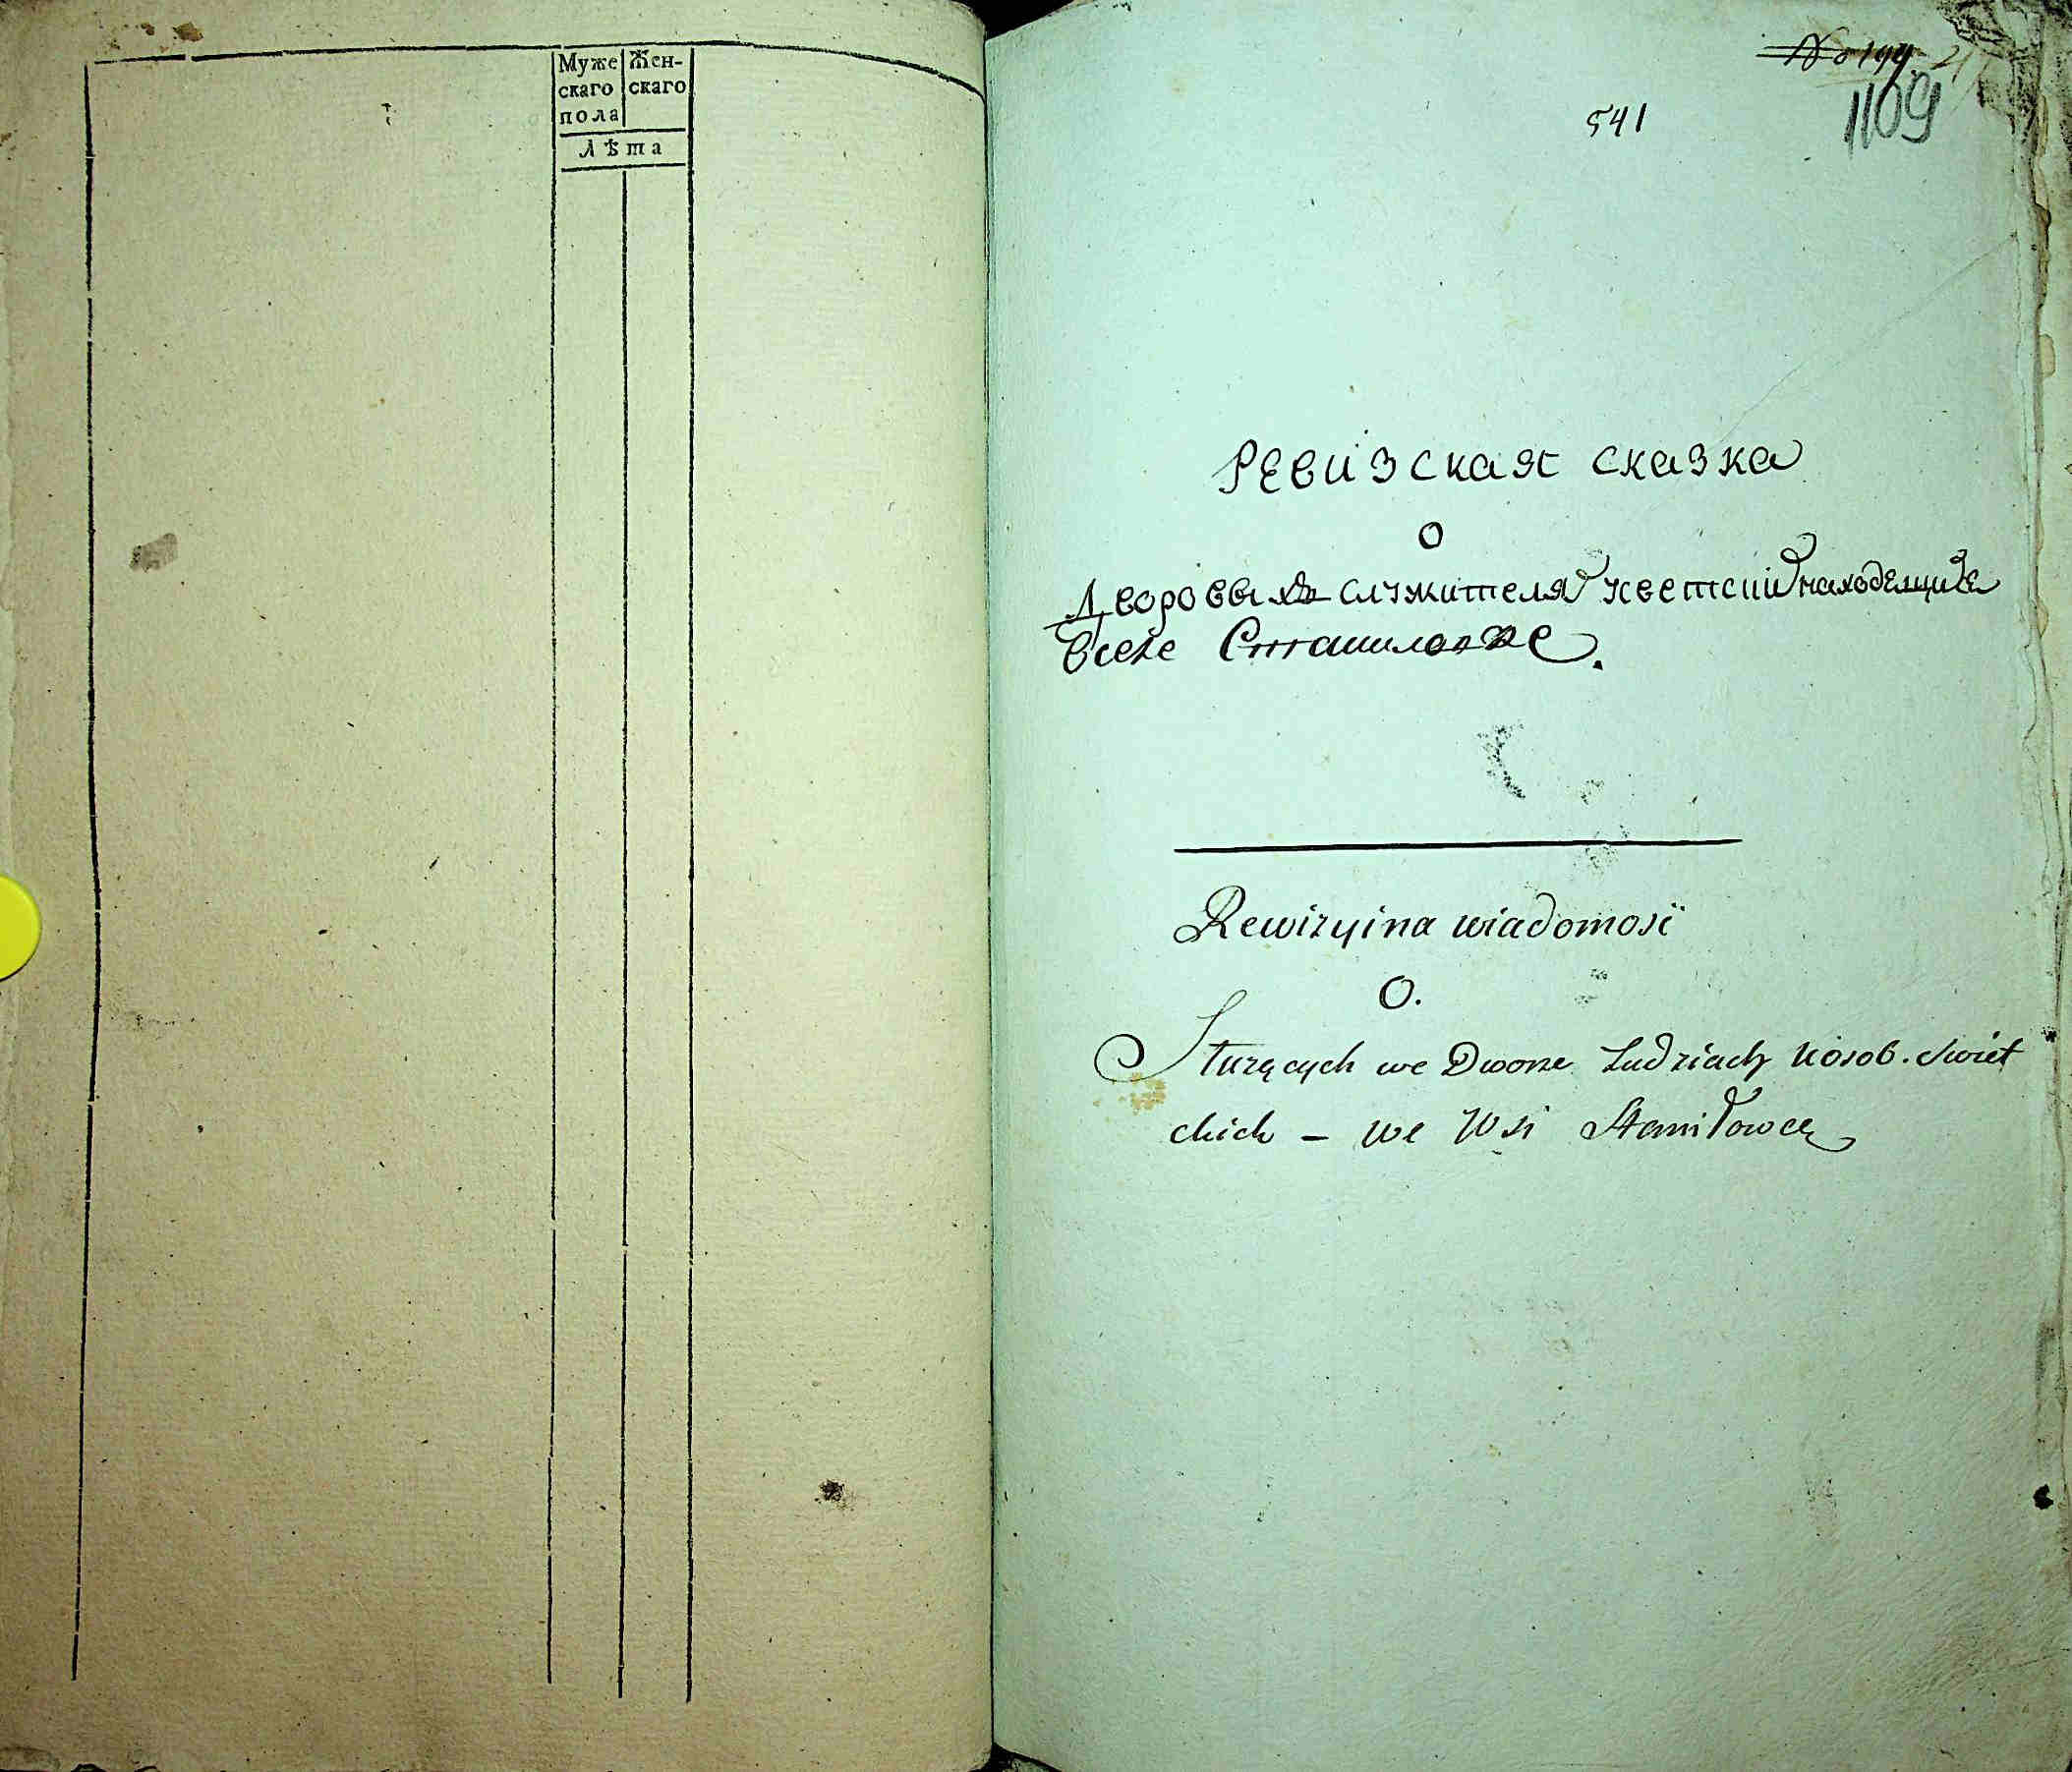 Муже
скаго
пола
Жен-
скаго
Лѣта
541
1109
Ревизская сказка
О
Дворовыхъ служителях и светских находещихсе
Вселе Станиловке.
Rewizyina wiadomość
O.
Służących we Dworze Ludziach i osob. Swiet
ckich – we Wsi Staniłowce